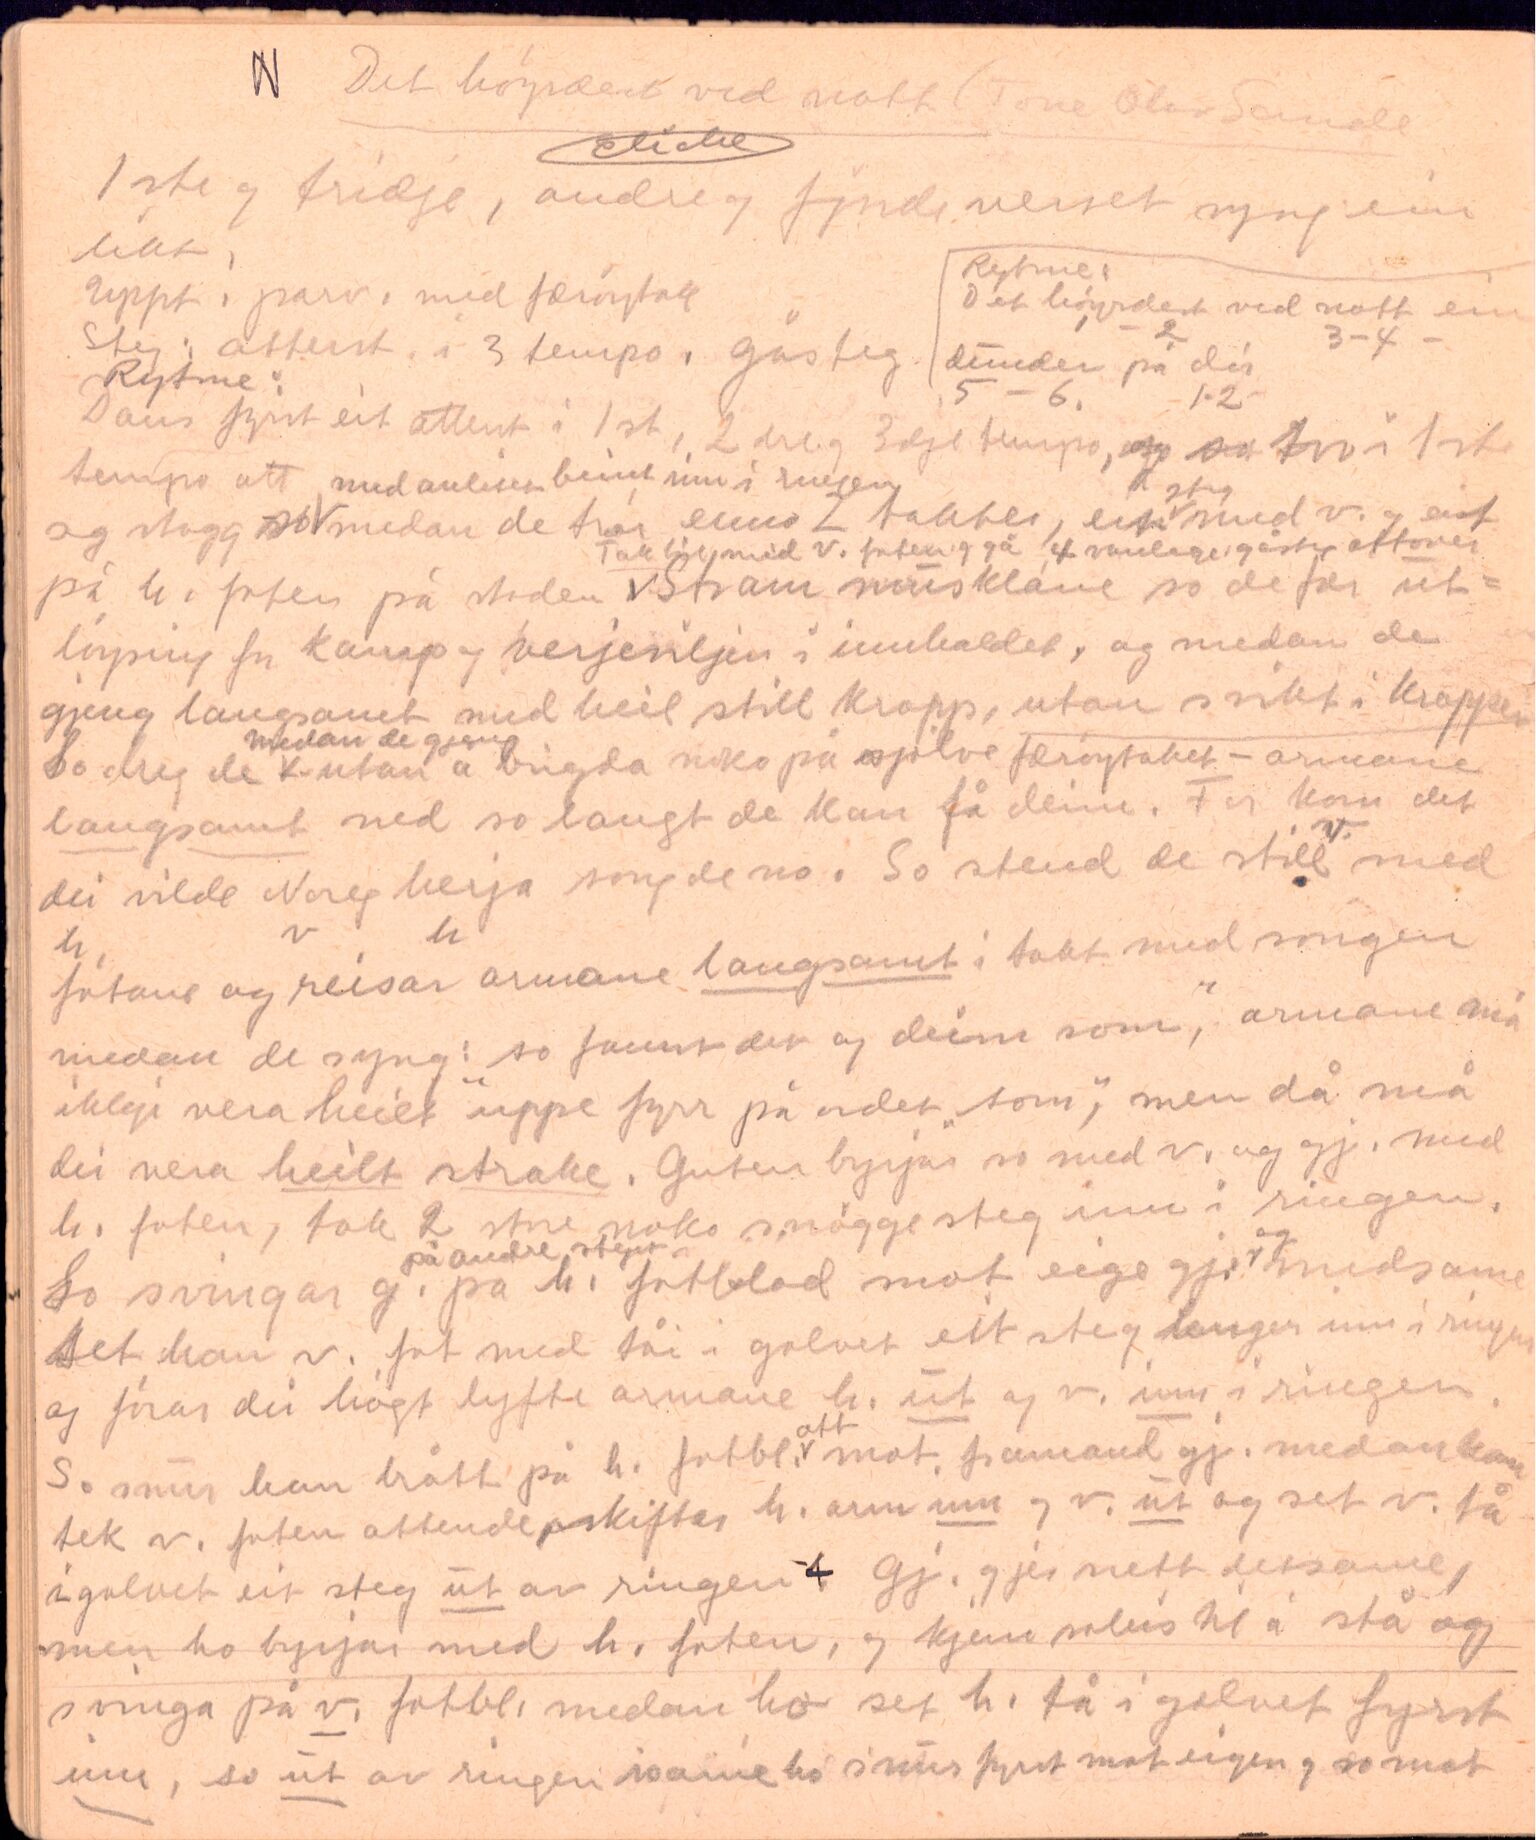 N Det höyrdest ved nott (Tone Olav Sande
1ste og tridje, andre og fjorde verset syng ein
likt,
Uppt. i parv. med færöytak
Steg: atterst. i 3 tempo. gåsteg
Rytme:
Det höyrdest ved nott ein
1 - 2 3-4 -
dunder på dör
5 - 6. 1-2
Rytme:
Dans fyrst eit atterst i 1st, 2dre og 3dje tempo, so two i 1ste
tempo att med andlitet beint inn i ringen
og stogg so medan de trör enno 2 takter, eit steg med v. og eit
Tak lös med v. foten og gå 4 vanlege gåsteg attover
på h. foten på staden Stram musklane so de fær ut=
löysing for kamp og verjeviljen i innhaldet, og medan de
gjeng langsamt med heil still kropp, utan svikt i kroppen
medan de gjeng
So dreg de utan å brigda noko på sjölve færöytaket - armane
langsamt ned so langt de kan få deim. For kom det
dei vilde Noreg herja song de no. So stend de still v. med
h. v h
fotane og reisar armane langsamt i takt med songen
medan de syng: so fannst det og deim som", armane må
ikkje vera heilt uppe fyrr på ordet "som", men då må
dei vera heilt strake. Guten byrjar so med v. og gj. med
h. foten, tak 2 store noko snögge steg inn i ringen.
på andre steget
So svingar g. på h. fotblad mot eige gj. og medsame
set han v. fot med tåi i golvet eit steg lenger inn i ringen
og förar dei högt lyfte armane h. ut og v. inn i ringen.
So snur han brått på h. fotbl. att mot framand gj. medan han
tek v. foten attende, skiftar h. arm inn og v. ut og set v. tå
i golvet eit steg ut av ringen. Gj. gjer nett detsame,
men ho byrjar med h. foten, og kjem soleis til å stå og
svinga på v. fotbl. medan ho set h. tå i golvet fyrst
inn, so ut av ringen ho snur fyrst mot eigen og so mot